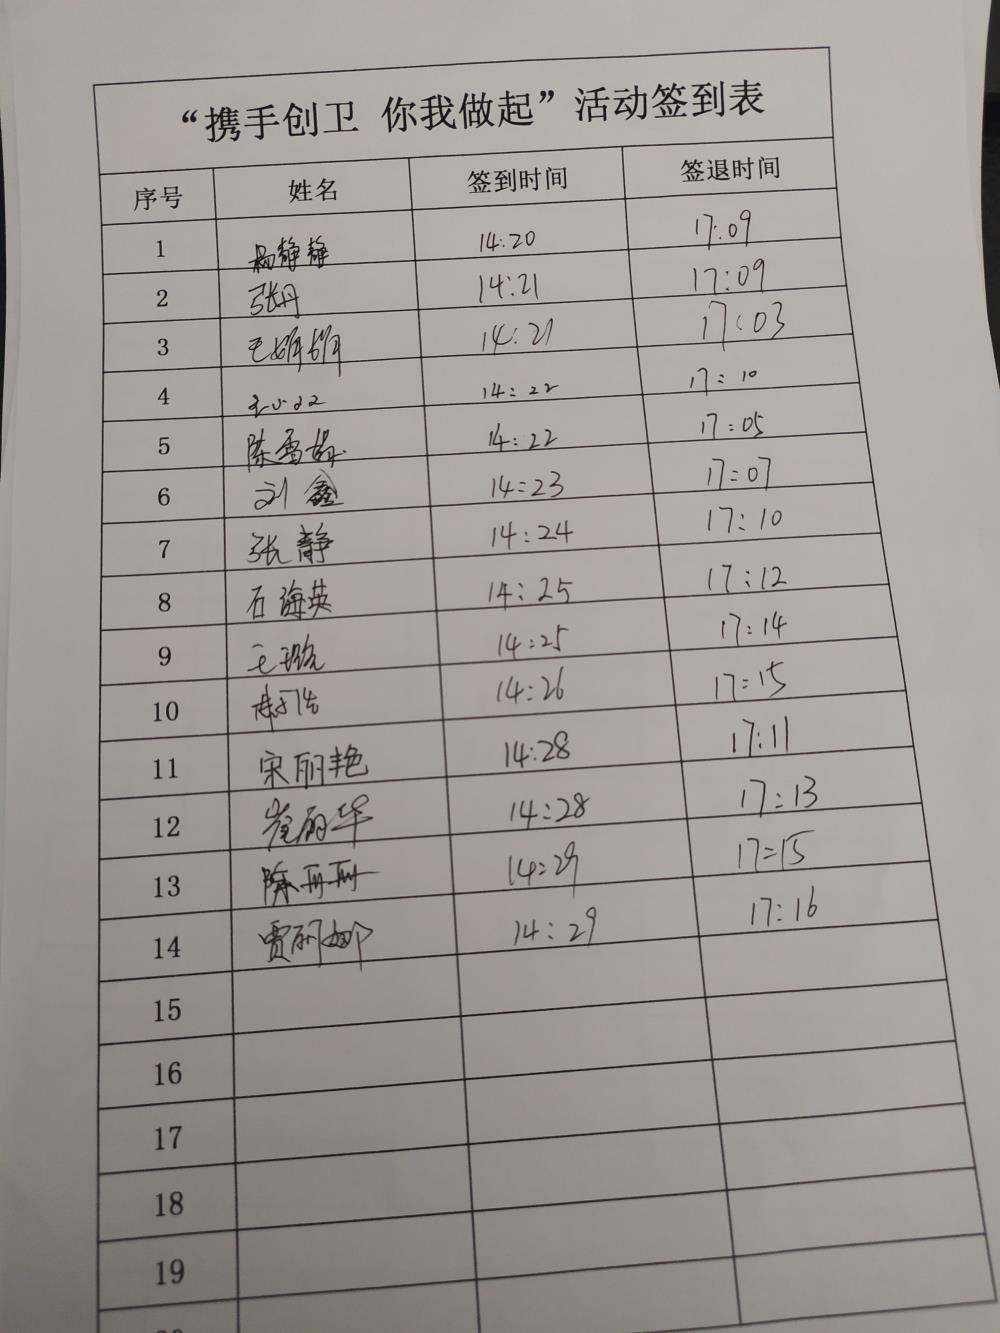 “携手创卫 你我做起”活动签到表
序号 姓名 签到时间 签退时间
1 杨静静 14:20 17:09
2 张丹 14:21 17:09
3 王娟娟 14:21 17:03
4 14:22 17:10
5 陈雪 14:22 17:05
6 刘鑫 14:23 17:07
7 张静 14:24 17:10
8 石海英 14:25 17:12
9 王璐 14:25 17:14
10 14:26 17:15
11 宋丽艳 14:28 17:11
12 崔丽华 14:28 17:13
13 陈丹丹 14:29 17:15
14 贾丽娜 14:29 17:16
15
16
17
18
19